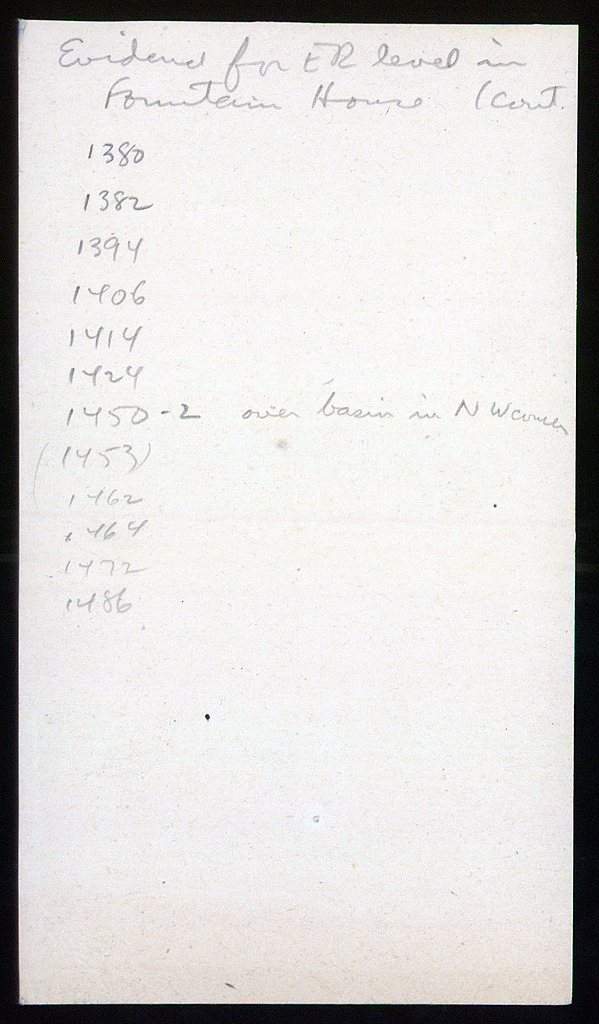 Evidence for ER level in
Fountain House (cont.
1380
1382
1394
1406
1414
1424
1450-2 over basin in N W corner
(1453)
1462
1464
1472
1486